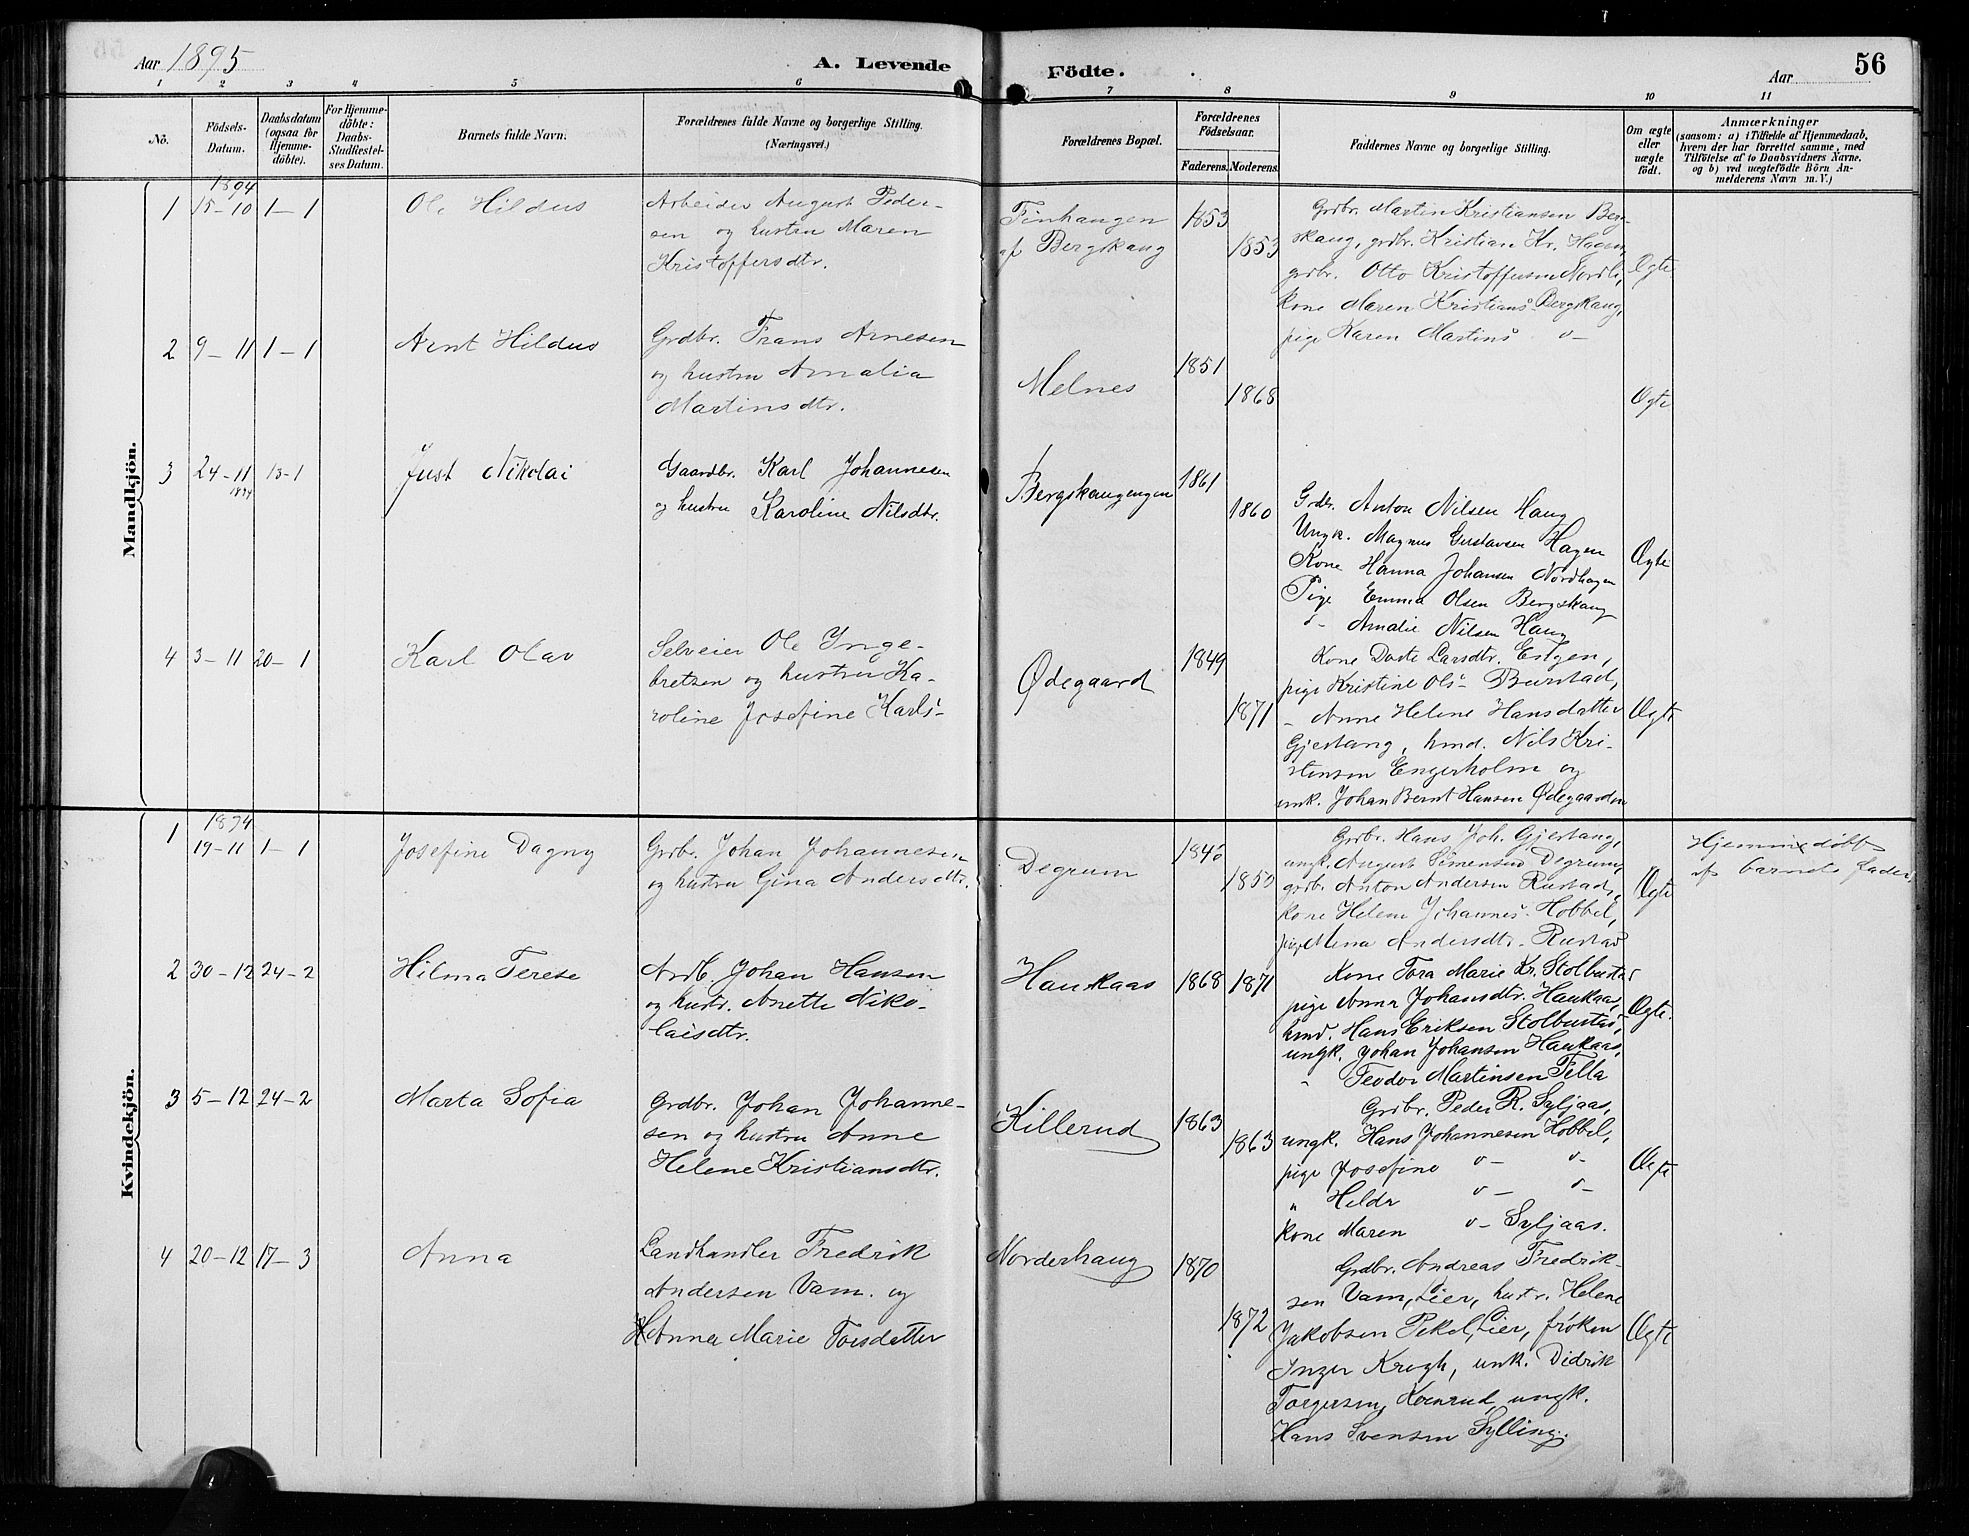 Aar 1895
A. Levende
Födte.
Aar
56
1 2 3 4 5 6 7 8 9 10 11
No.
Födsels-Datum.
Daabsdatum (ogsaa for Hjemme-döbte).
For Hjemme-döbte: Daabs-Stadfæstel-ses Datum.
Barnets fulde Navn.
Forældrenes fulde Navne og borgerlige Stilling. (Næringsvei.)
Forældrenes Bopæl.
Forældrenes Födselsaar.
Faderens. Moderens.
Faddernes Navne og borgerlige Stilling.
Om ægte eller uægte födt.
Anmærkninger
(saasom: a) i Tilfælde af Hjemmedaab,
hvem der har forrettet samme, med
Tilföielse af to Daabsvidners Navne,
og b) ved uægtefödte Börn An-
melderens Navn m. V.)
Mandkjön.
1894
1 15-10 1-1 Ole Hildus
Arbeider August Peder-
sen og hustru Maren
Kristoffersdtr.
Finhaugen
af Bergskaug
1853
1853
Grdbr. Martin Kristiansen Berg-
skaug, grdbr. Kristian Kr. Hagen,
grdbr. Otto Kristoffersen Nordli,
kone Maren Kristians- Bergskaug,
pige Karen Martins o-
Ægte
2 9-11 1-1 Arnt Hildus
Grdbr. Frans Arnesen
og hustru Amalia
Martinsdtr.
Melnes
1851
1868
Ægte
3 24-11 1894 13-1 Just Nikolai
Gaardbr. Karl Johannesen
og hustru Karoline Nilsdtr.
Bergskaugengen
1861
1860
Grdbr. Anton Nilsen Haug
Ungk. Magnus Gustavsen Hagen
Kone Hanna Johansen Nordhagen
Pige Emma Olsen Bergskaug
o- Amalie Nilsen Haug
Ægte
4 3-11 20-1 Karl Olav
Selveier Ole Inge-
bretsen og hustru Ka-
roline Josefine Karls-
Ødegaard
1849
1871
Kone Dorte Larsdtr. Engen,
pige Kristine Ols- Burstad,
- Anne Helene Hansdatter
Gjestang, hmd. Nils Kri-
stensen Engerholm og
unk. Johan Bernt Hansen Ødegaarden
Ægte
Kvindekjön.
1894
1 19-11 1-1 Josefine Dagny
Grdbr. Johan Johannesen
og hustru Gina Andersdtr.
Degrum
1846
1850
Grdbr. Hans Joh. Gjestang,
ungk. August Simensen Degrum,
grdbr. Anton Andersen Rustad,
kone Helene Johannes- Hobbel,
pige Mina Andersdtr. Rustad
Ægte
Hjemmedøbt
af barnets fader.
2 30-12 24-2 Hilma Terese
Ardb. Johan Hansen
og hustr. Anette Niko-
laisdtr.
Haukaas
1868 1871
Kone Tora Marie Kr. Stolbustas
pige Anna Johansdtr. Haukaas,
hmd. Hans Eriksen Stolbustas,
ungk. Johan Johansen Haukaas,
" Teodor Martinsen Filla
Ægte.
3 5-12 24-2 Marta Sofia
Grdbr. Johan Johanne-
sen og hustru Anne
Helene Kristiansdtr.
Killerud
1863
1863
Grdbr. Peder R. Syljaas,
ungk. Hans Johannesen Hobbel,
pige Josefine o- o-
" Hilda o- o-
kone Maren o- Syljaas.
Ægte
4 20-12 17-3 Anna
Landhandler Fredrik
Andersen Vam. og
H. Anna Marie Torsdatter
Norderhaug
1870
1872
Grdbr. Andreas Fredrik-
sen Vam, Lier, hustr. Helene
Jakobsen Pekel, Lier, frøken
Inger Krogh, unk. Didrik
Torgersen, Kornrud, ungk.
Hans Svensen Sylling.
Ægte